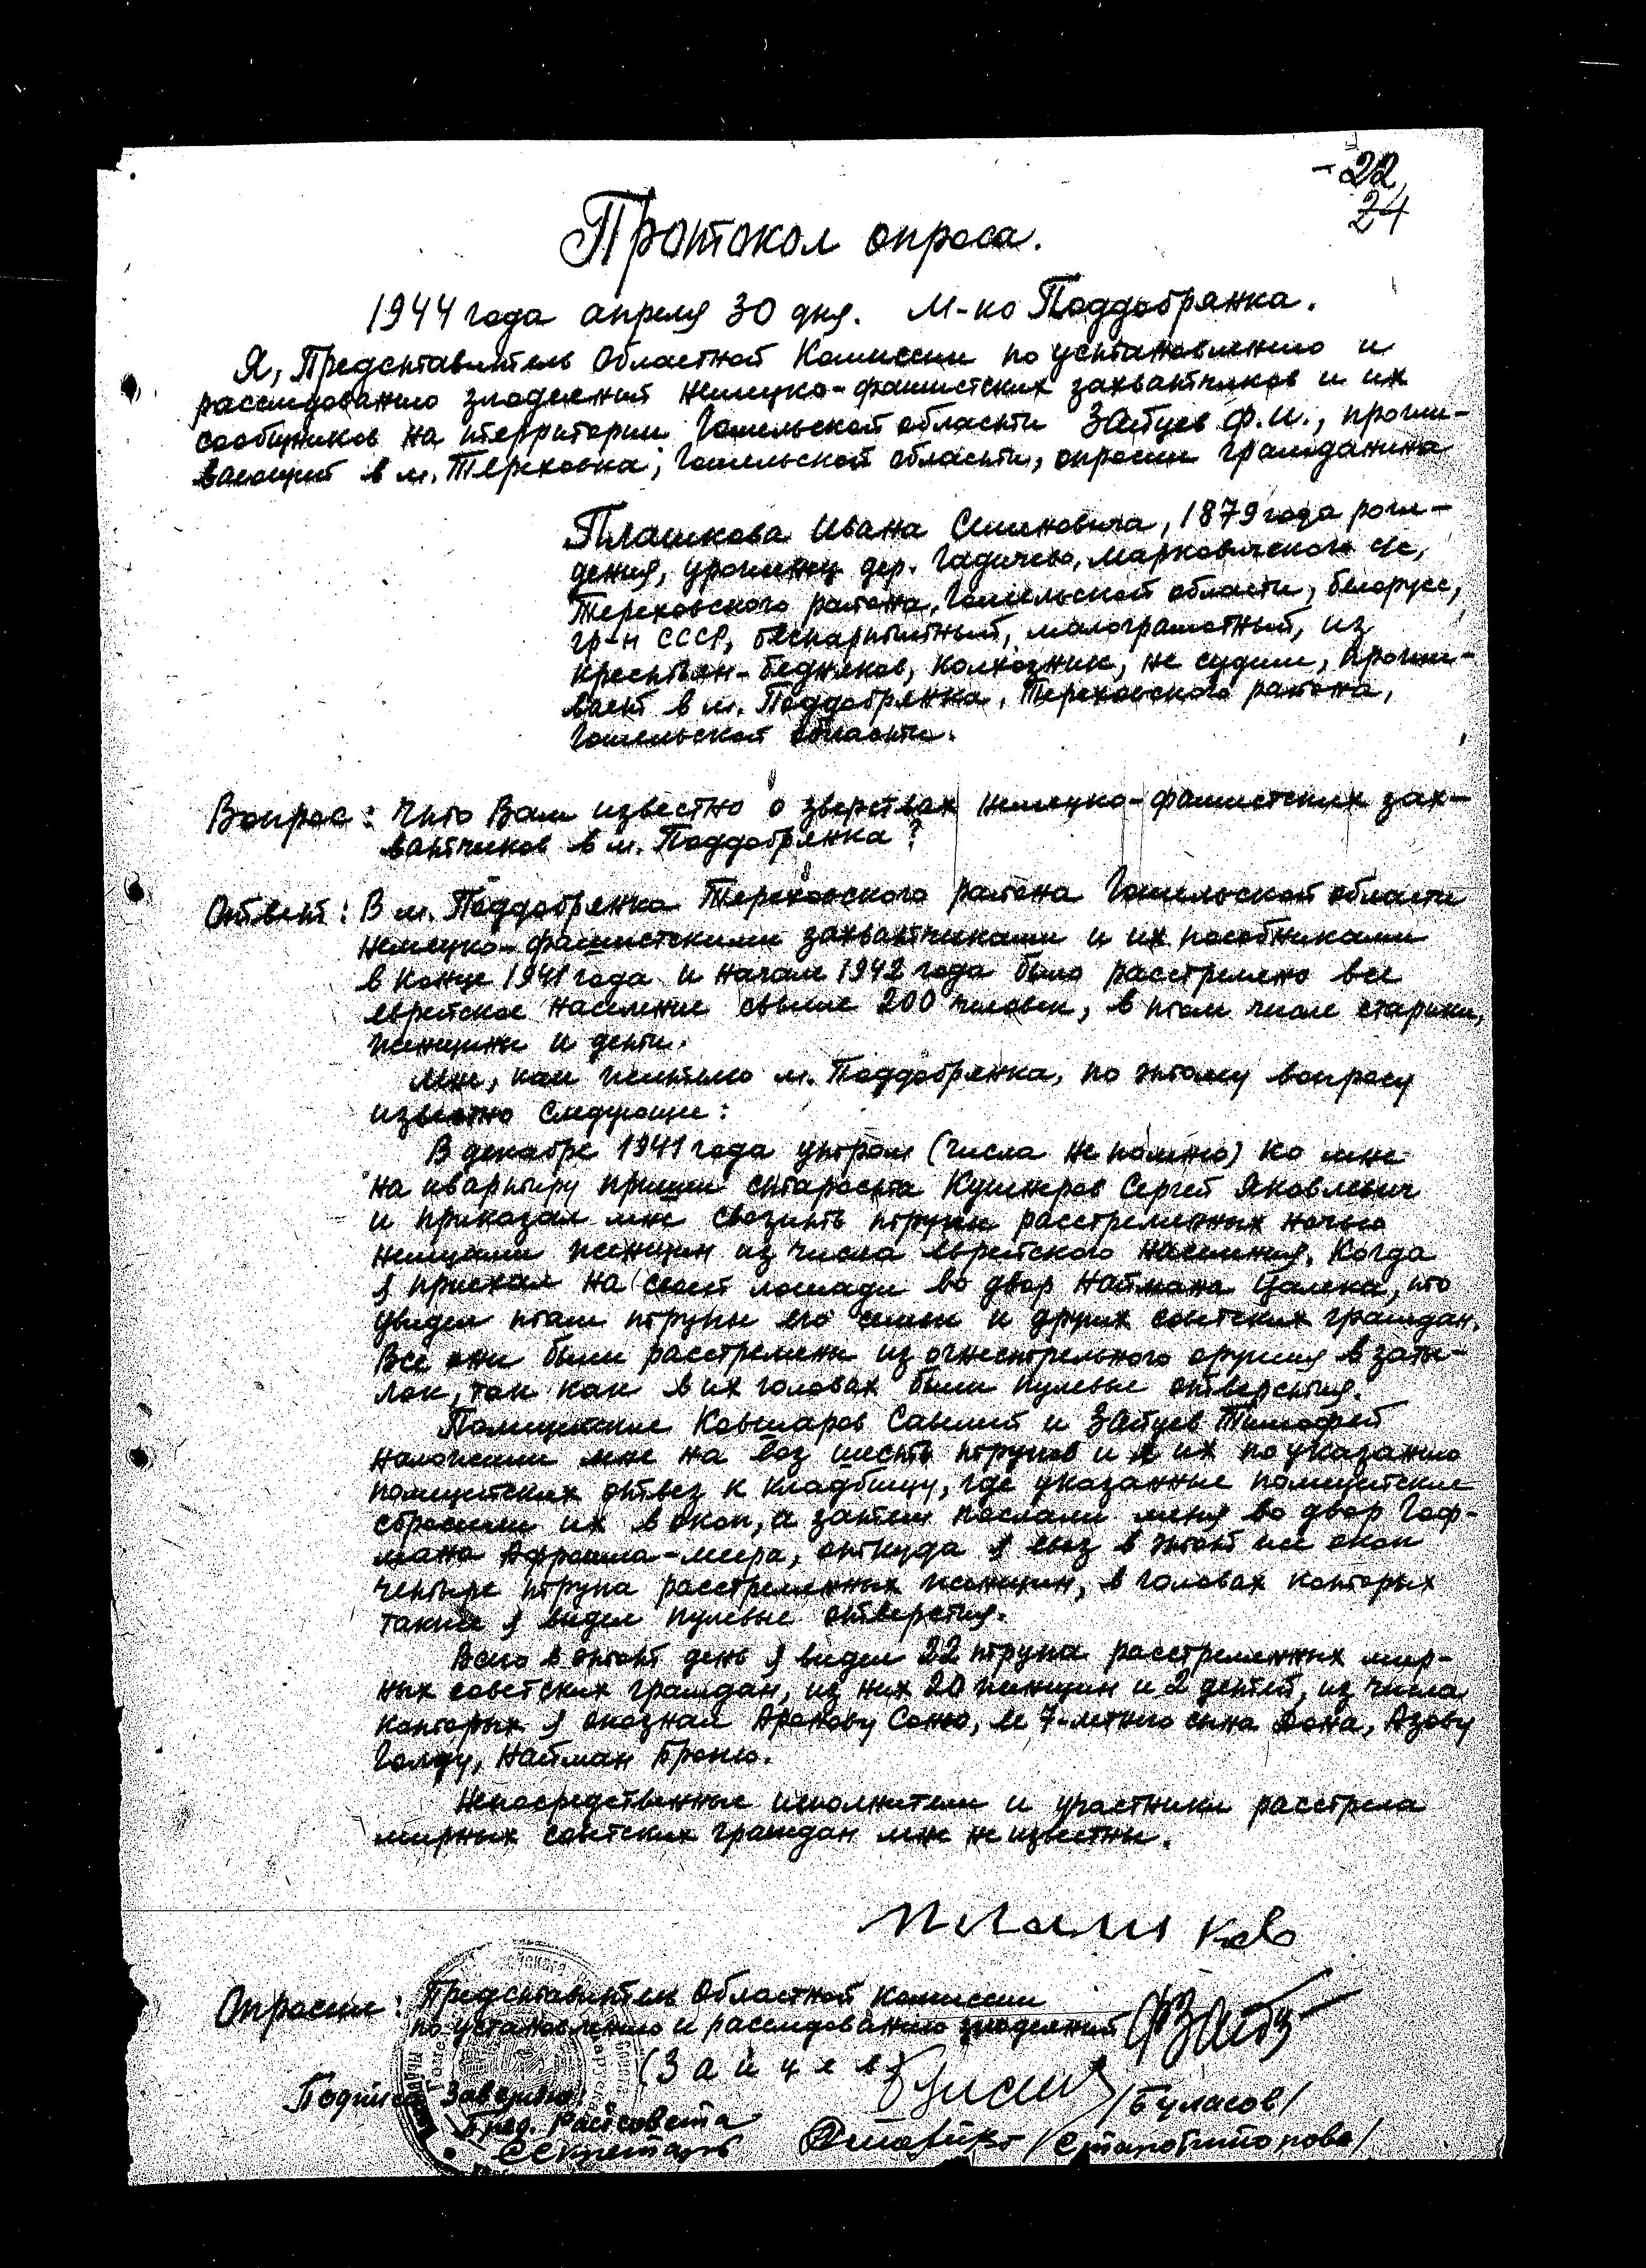 - 22
24
Протокол опроса.
1944 года апреля 30 дня. М-ко Поддобрянка.
Я, Представитель Областной Комиссии по установлению и
расследованию злодеяний немецко-фашистских захватчиков и их
сообщников на территории Гомельской области Зайцев Ф.И., прожи-
вающий в м. Тереховка, Гомельской области, опросил гражданина
Плашкова Ивана Семеновича, 1879 года рож-
дения, уроженец дер. Гадичево, Марковичского с/с,
Тереховского района, Гомельской области, белорусс,
гр-н СССР, беспартийный, малограмотный, из
крестьян-бедняков, колхозник, не судим, прожи-
вает в м. Поддобрянка, Тереховского района,
Гомельской области.
Вопрос: Что Вам известно о зверствах немецко-фашистских зах-
ватчиков в м. Поддобрянка?
Ответ: В м. Поддобрянка Тереховского района Гомельской области
немецко-фашистскими захватчиками и их пособниками
в конце 1941 года и начале 1942 года было расстреляно все
еврейское население свыше 200 человек, в том числе старики,
женщины и дети.
Мне, как жителю м. Поддобрянка, по этому вопросу
известно следующее:
В декабре 1941 года утром (числа не помню) ко мне
на квартиру пришел староста Кушнеров Сергей Яковлевич
и приказал мне свозить трупы расстрелянных ночью
немцами женщин из числа еврейского населения. Когда
я приехал на своей лошади во двор Наймана Цалека, то
увидел там трупы его семьи и других советских граждан.
Все они были расстреляны из огнестрельного оружия в заты-
лок, так как в их головах были пулевые отверстия.
Полицейские Ковшаров Савелий и Зайцев Тимофей
наложили мне на воз шесть трупов и я их по указанию
полицейских отвез к кладбищу, где указанные полицейские
сбросили их в окоп, а затем послали меня во двор Гоф-
мана Афроима-Меера, откуда я свез в этот же окоп
четыре трупа расстрелянных женщин, в головах которых
также я видел пулевые отверстия.
Всего в этот день я видел 22 трупа расстрелянных мир-
ных советских граждан, из них 20 женщин и 2 детей, из числа
которых я опознал Аронову Соню, ее 7-летнего сына Азову
Голду, Найман Броню.
Непосредственные исполнители и участники расстрела
мирных советских граждан мне не известны.
Плашков
Опросил: Представитель Областной Комиссии
по установлению и расследованию злодеяний
(Зайцев)
Подписи заверяю:
Пред. Райсовета /Буласов/
Секретарь